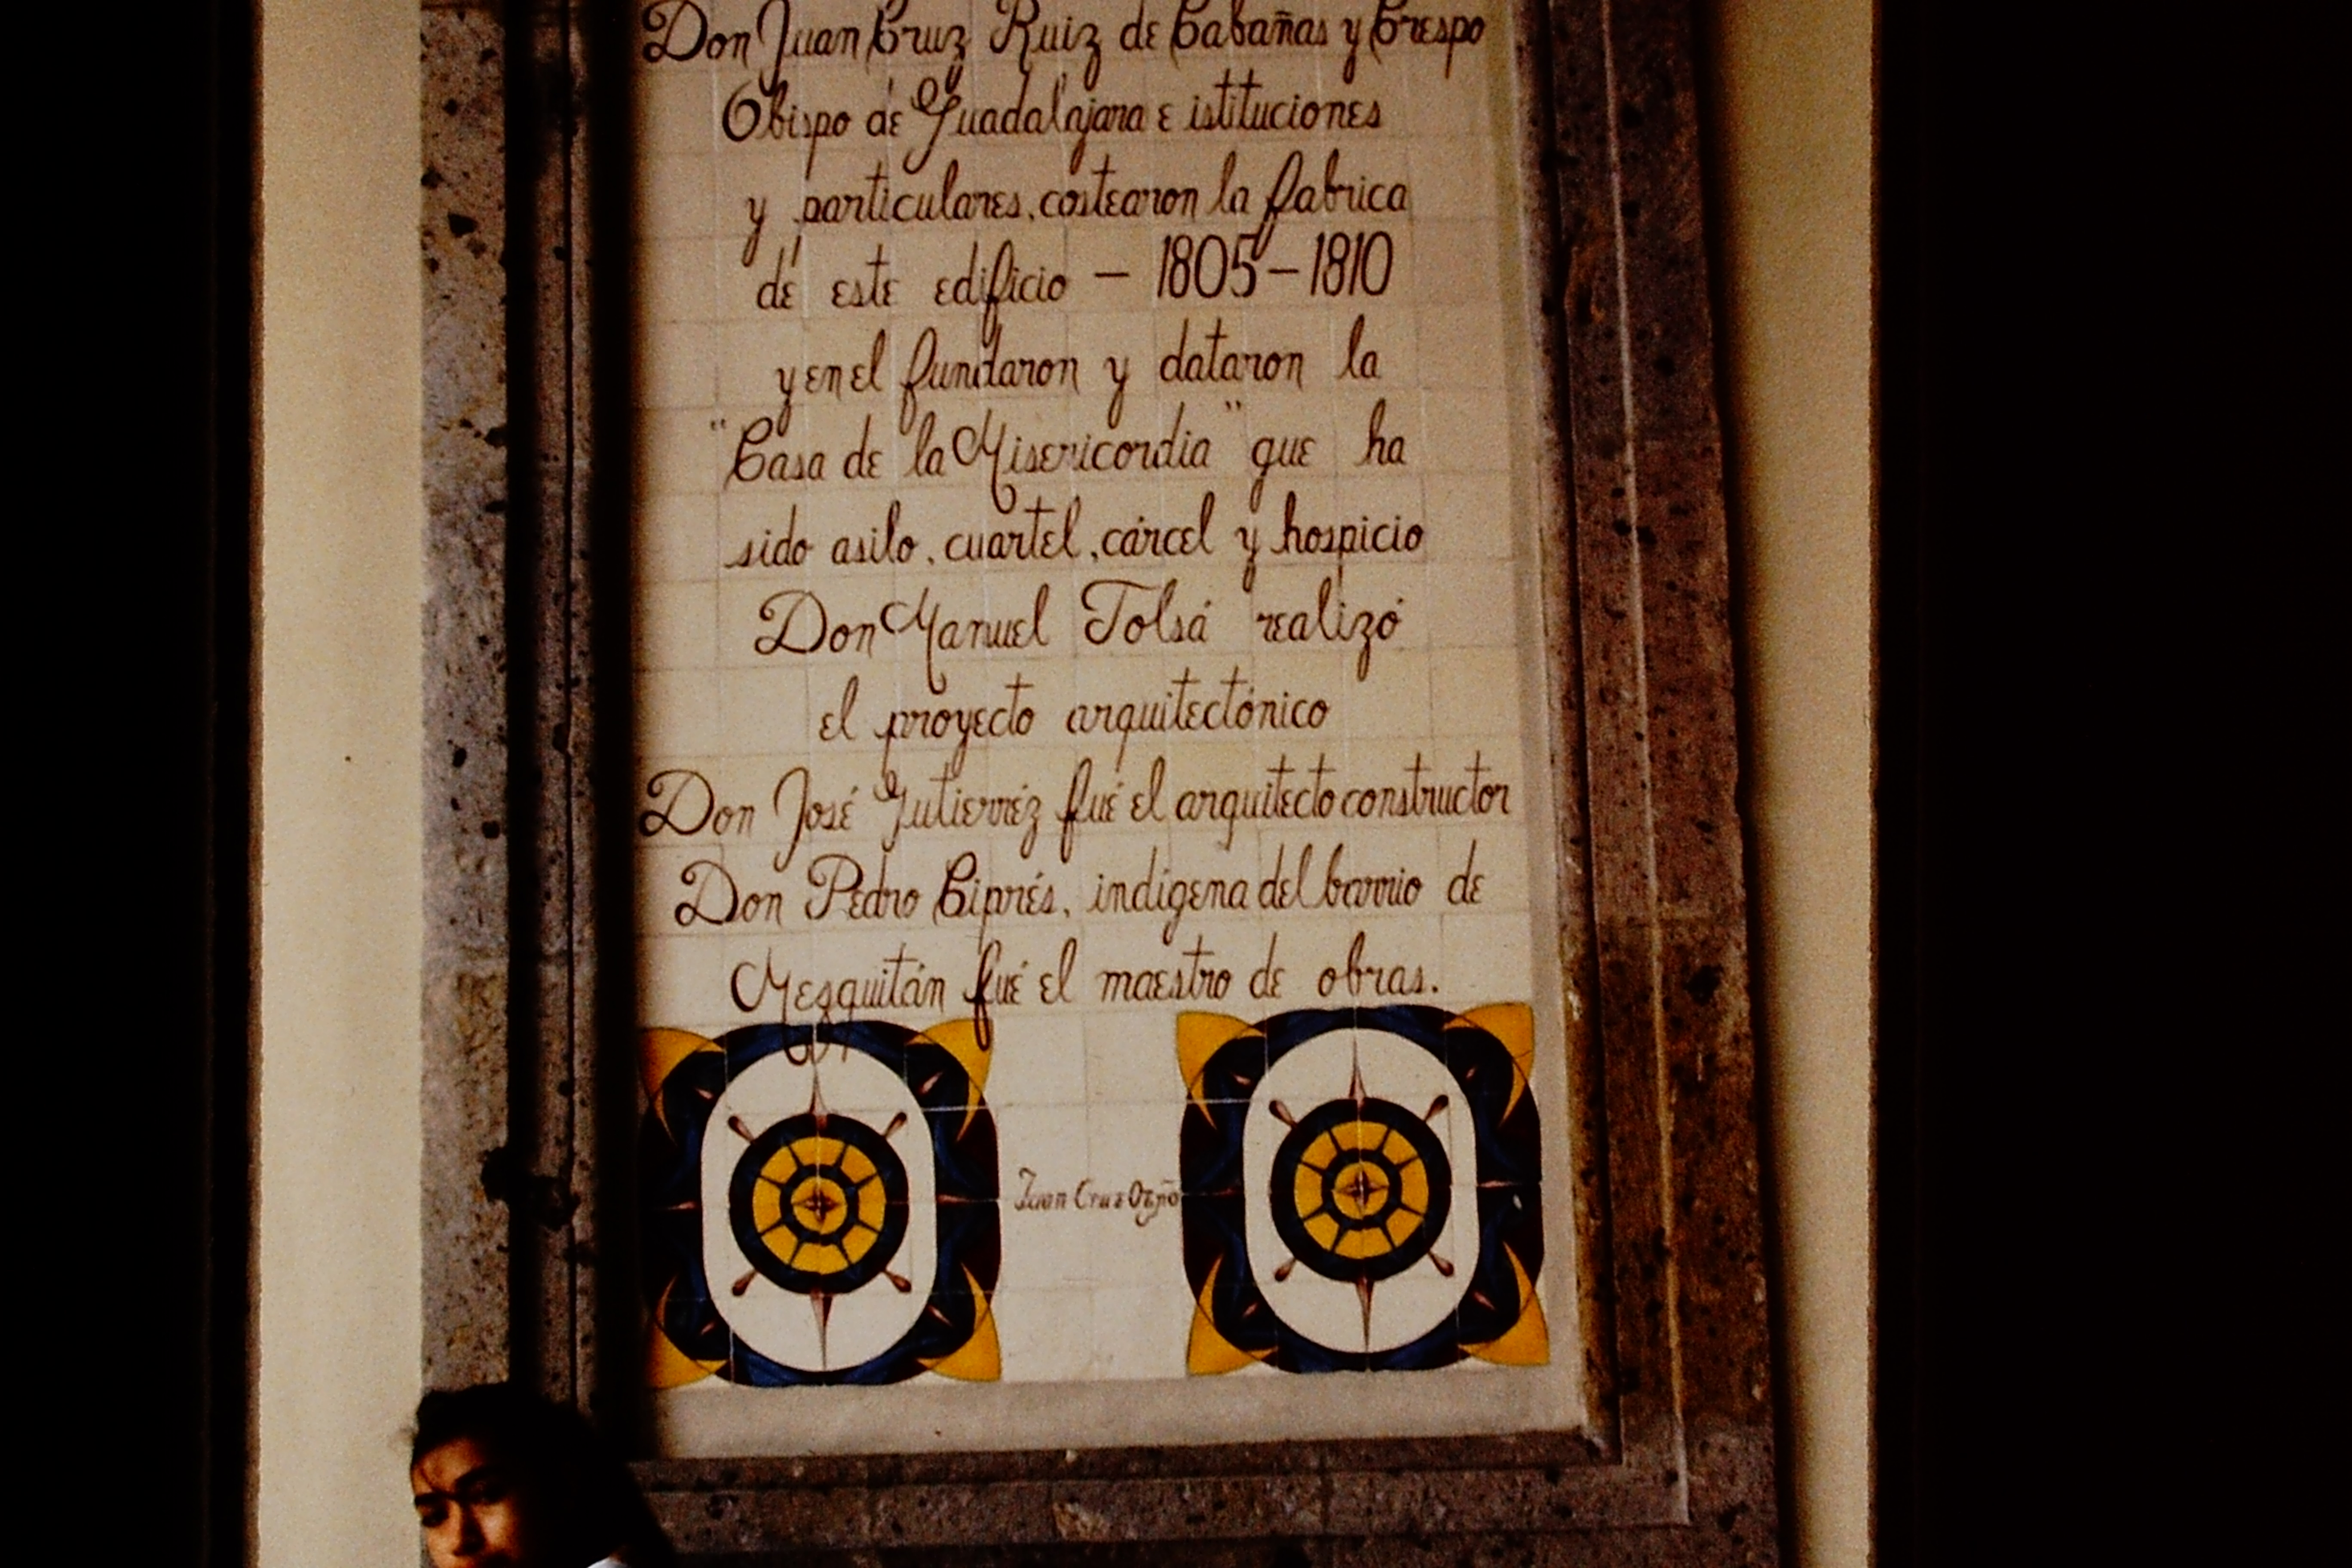 Don Juan Cruz Ruiz de Cabañas y Crespo
Obispo de Guadalajara e istituciones
y particulares, costearon la fabrica
de este edificio - 1805-1810
y en el fundaron y dataron la
"Casa de la Misericordia" que ha
sido asilo, cuartel, cárcel y hospicio
Don Manuel Tolsá realizó
el proyecto arquitectónico
Don José Gutierréz fué el arquitecto constructor
Don Pedro Ciprés, indígena del barrio de
Mesquitán fué el maestro de obras.
Juan Cruz